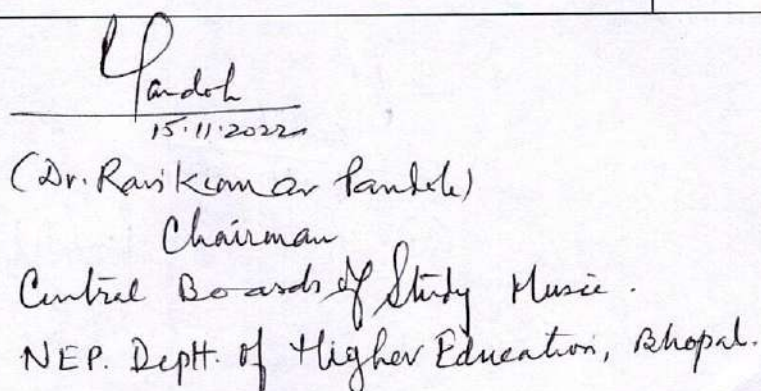 Pandoh
15.11.2022
(Dr. Ravi Kumar Pandoh)
Chairman
Central Boards of Study Music.
NEP. Deptt. of Higher Education, Bhopal.